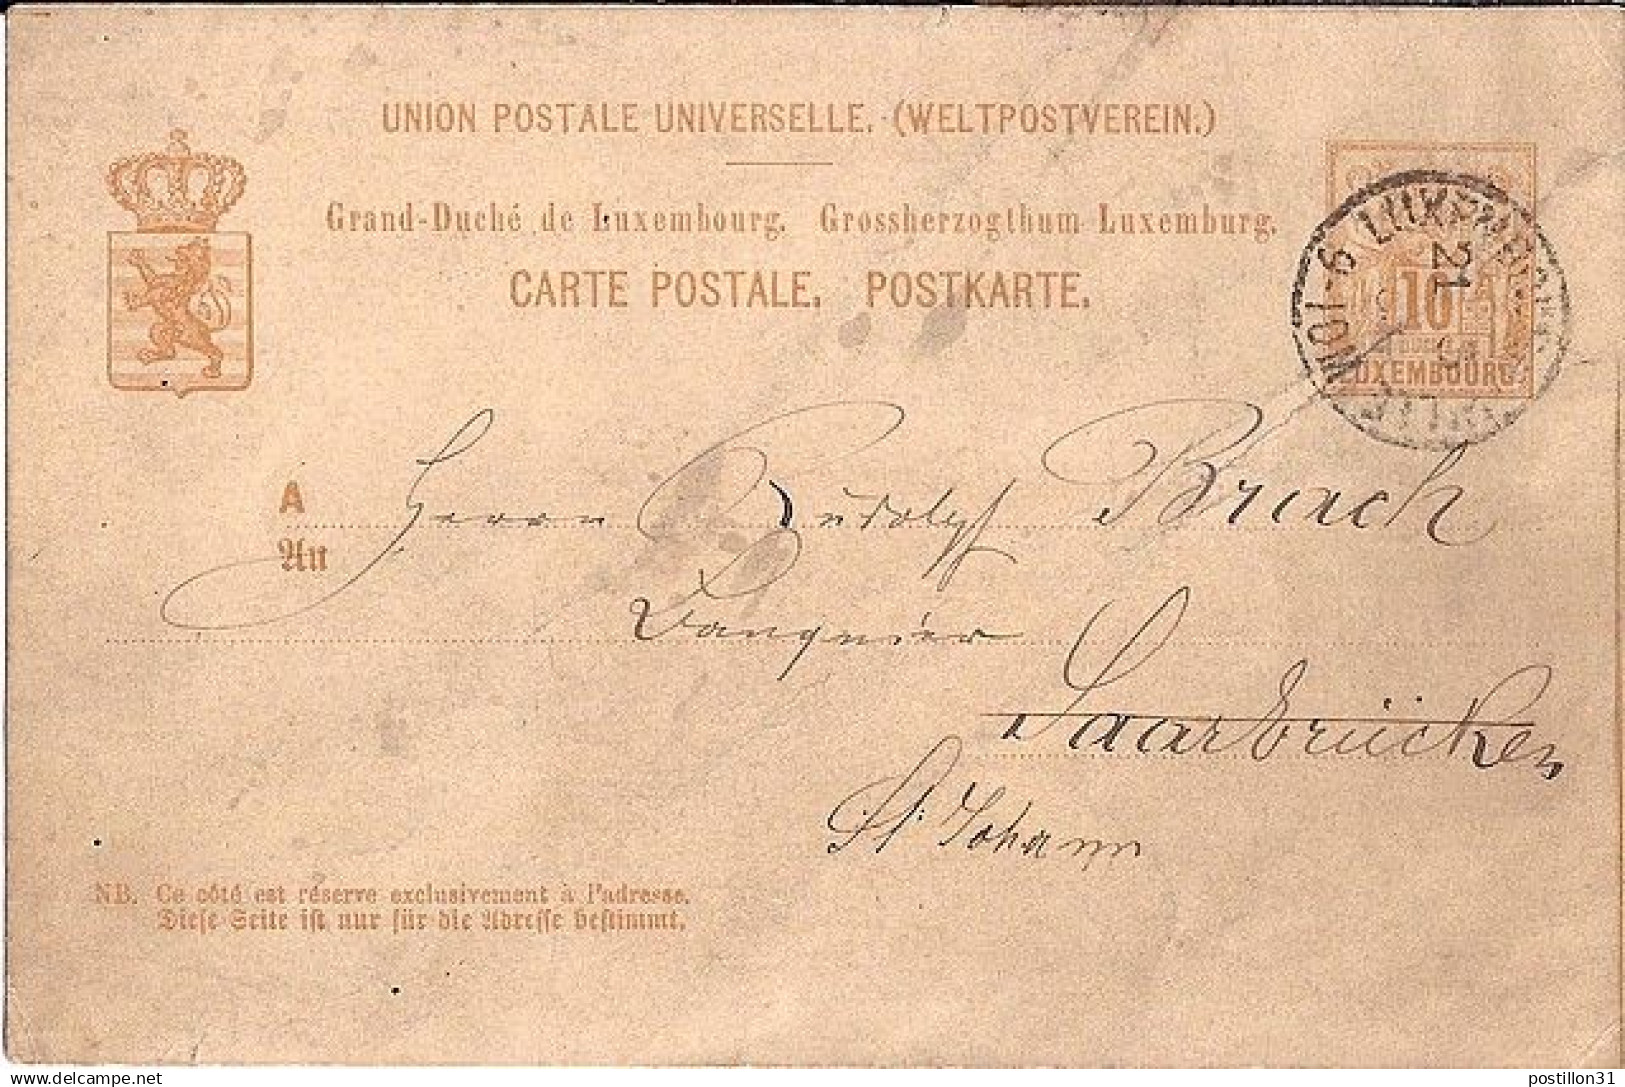 UNION POSTALE UNIVERSELLE. (WELTPOSTVEREIN.)
Grand-Duché de Luxembourg. Grossherzogthum Luxemburg.
CARTE POSTALE. POSTKARTE.
10
LUXEMBOURG
LUXEMBOURG-VILLE
9-10M
21
A
An
Herrn Rudolph Brach
Banquier
Saarbrücken
St. Johann
NB. Ce côté est réservé exclusivement à l'adresse.
Diese Seite ist nur für die Adresse bestimmt.
postillon31